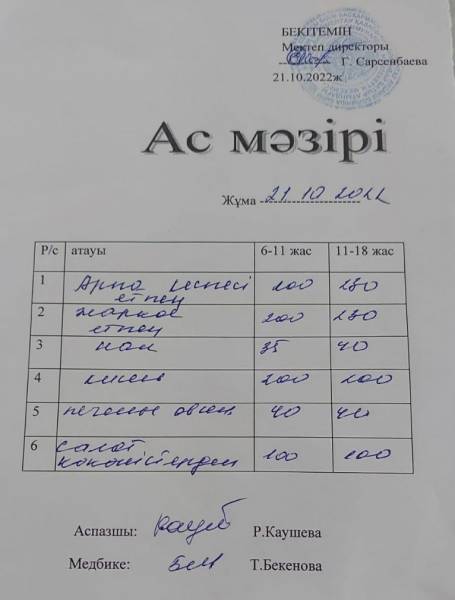 БЕКІТЕМІН
Мектеп директоры
Г. Сарсенбаева
21.10.2022ж
Ас мәзірі
Жұма 21 10 2022
Р/с атауы 6-11 жас 11-18 жас
1 Арпа кеспесі 200 250
етпен
2 жаркое 200 250
етпен
3 нан 35 40
4 кисель 200 200
5 печенье овсян 40 40
6 салат
көкөністерден 100 100
Аспазшы: Р.Каушева
Медбике: Т.Бекенова